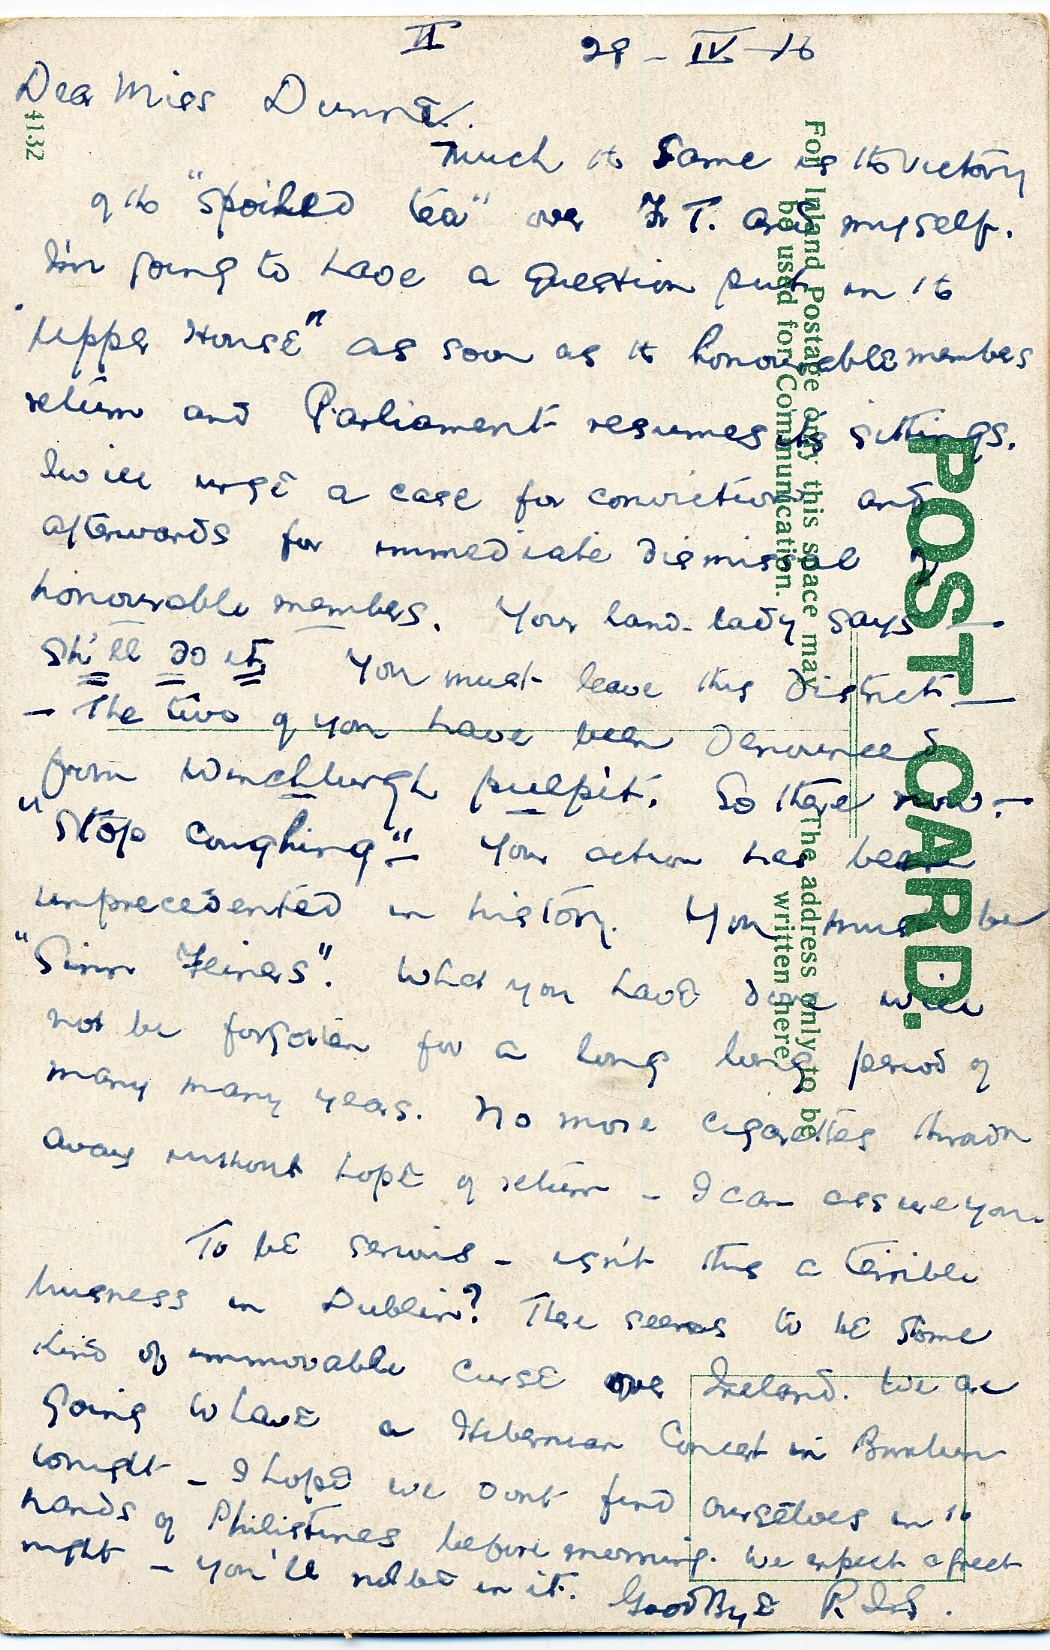 II 29 - IV - 16
Dear Miss Dunne.
Much to same is the victory
of the "spoiled tea" over F.T. and myself.
I'm going to have a Question put in the
"Upper House" as soon as the honourable members
return and Parliament resumes its sittings.
I will urge a case for conviction and
afterwards for immediate dismissal of
honourable members. Your land-lady says —
She'll do it. You must leave this District —
— The two of you have been denounced
from Winchburgh pulpit. So there now. —
"Stop coughing" — Your action has been
unprecedented in history. You must be
"Sinn Feiners". What you have done will
not be forgotten for a long long period of
many many years. No more cigarettes thrown
away without hope of return - I can assure you.
To be serious - isn't this a terrible
business in Dublin? There seems to be some
kind of immovable curse over Ireland. We are
going to have a Hibernian Concert in
tonight - I hope we dont find ourselves in the
hands of Philistines before morning. We expect a great
night - you'll not be in it. GoodBye
4132
POST CARD.
For Inland Postage only this space may
be used for Communication.
The address only to be
written here